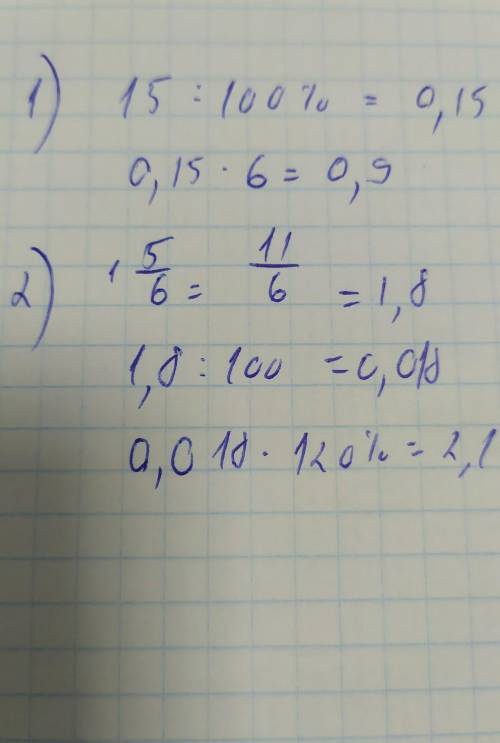 1) 15 : 100% = 0,15
0,15 · 6 = 0,9
2) 1 5/6 = 11/6 = 1,8
1,8 : 100 = 0,018
0,018 · 120% = 2,1